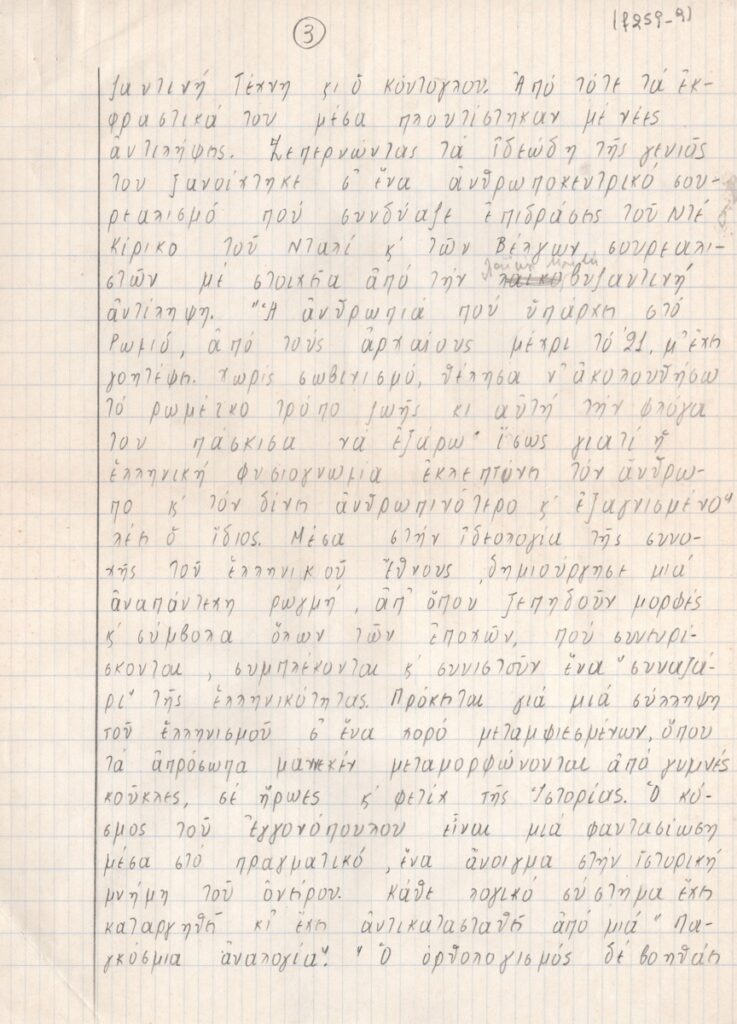 (f259-9)
3
ζαντινή Τέχνη κι ὁ Κόντογλου. Ἀπό τότε τά ἐκ-
φραστικά του μέσα πλουτίστηκαν μέ νέες
ἀντιλήψεις. Ξεπερνώντας τά ἰδεώδη τῆς γενιᾶς
του ξανοίχτηκε σ' ἕνα ἀνθρωποκεντρικό σου-
ρεαλισμό πού συνδύαζε ἐπιδράσεις τοῦ Ντέ
Κίρικο τοῦ Νταλί κ' τῶν Βέλγων σουρεαλι-
στῶν μέ στοιχεῖα ἀπό τήν βυζαντινή
ἀντίληψη. "Ἡ ἀνθρωπιά πού ὑπάρχει στό
Ρωμιό, ἀπό τούς ἀρχαίους μέχρι τό '21, μ' ἔχει
γοητέψει. Χωρίς σωβινισμό, θέλησα ν' ἀκολουθήσω
τό ρωμέικο τρόπο ζωῆς κι αὐτή τήν φλόγα
του πάσκισα νά ἐξάρω· ἴσως γιατί ἡ
ἑλληνική φυσιογνωμία ἐκλεπτύνει τόν ἄνθρω-
πο κ' τόν δίνει ἀνθρωπινότερο κ' ἐξαγνισμένο"
λέει ὁ ἴδιος. Μέσα στήν ἰδεολογία τῆς συνο-
χῆς τοῦ ἑλληνικοῦ Ἔθνους, δημιούργησε μιά
ἀναπάντεχη ρωγμή, ἀπ' ὅπου ξεπηδοῦν μορφές
κ' σύμβολα ὅλων τῶν ἐποχῶν, πού συνευρί-
σκονται, συμπλέκονται κ' συνιστοῦν ἕνα "συναξά-
ρι" τῆς ἑλληνικότητας. Πρόκειται γιά μιά σύλληψη
τοῦ ἑλληνισμοῦ σ' ἕνα χορό μεταμφιεσμένων, ὅπου
τά ἀπρόσωπα μανεκέν μεταμορφώνονται ἀπό γυμνές
κοῦκλες, σέ ἥρωες κ' φετίχ τῆς Ἱστορίας. Ὁ κό-
σμος τοῦ Ἐγγονόπουλου εἶναι μιά φαντασίωση
μέσα στό πραγματικό, ἕνα ἄνοιγμα στήν ἱστορική
μνήμη τοῦ ὀνείρου. Κάθε λογικό σύστημα ἔχει
καταργηθεῖ κι ἔχει ἀντικατασταθεῖ ἀπό μιά "Πα-
γκόσμια ἀναλογία". "Ὁ ὀρθολογισμός δέ βοηθάει